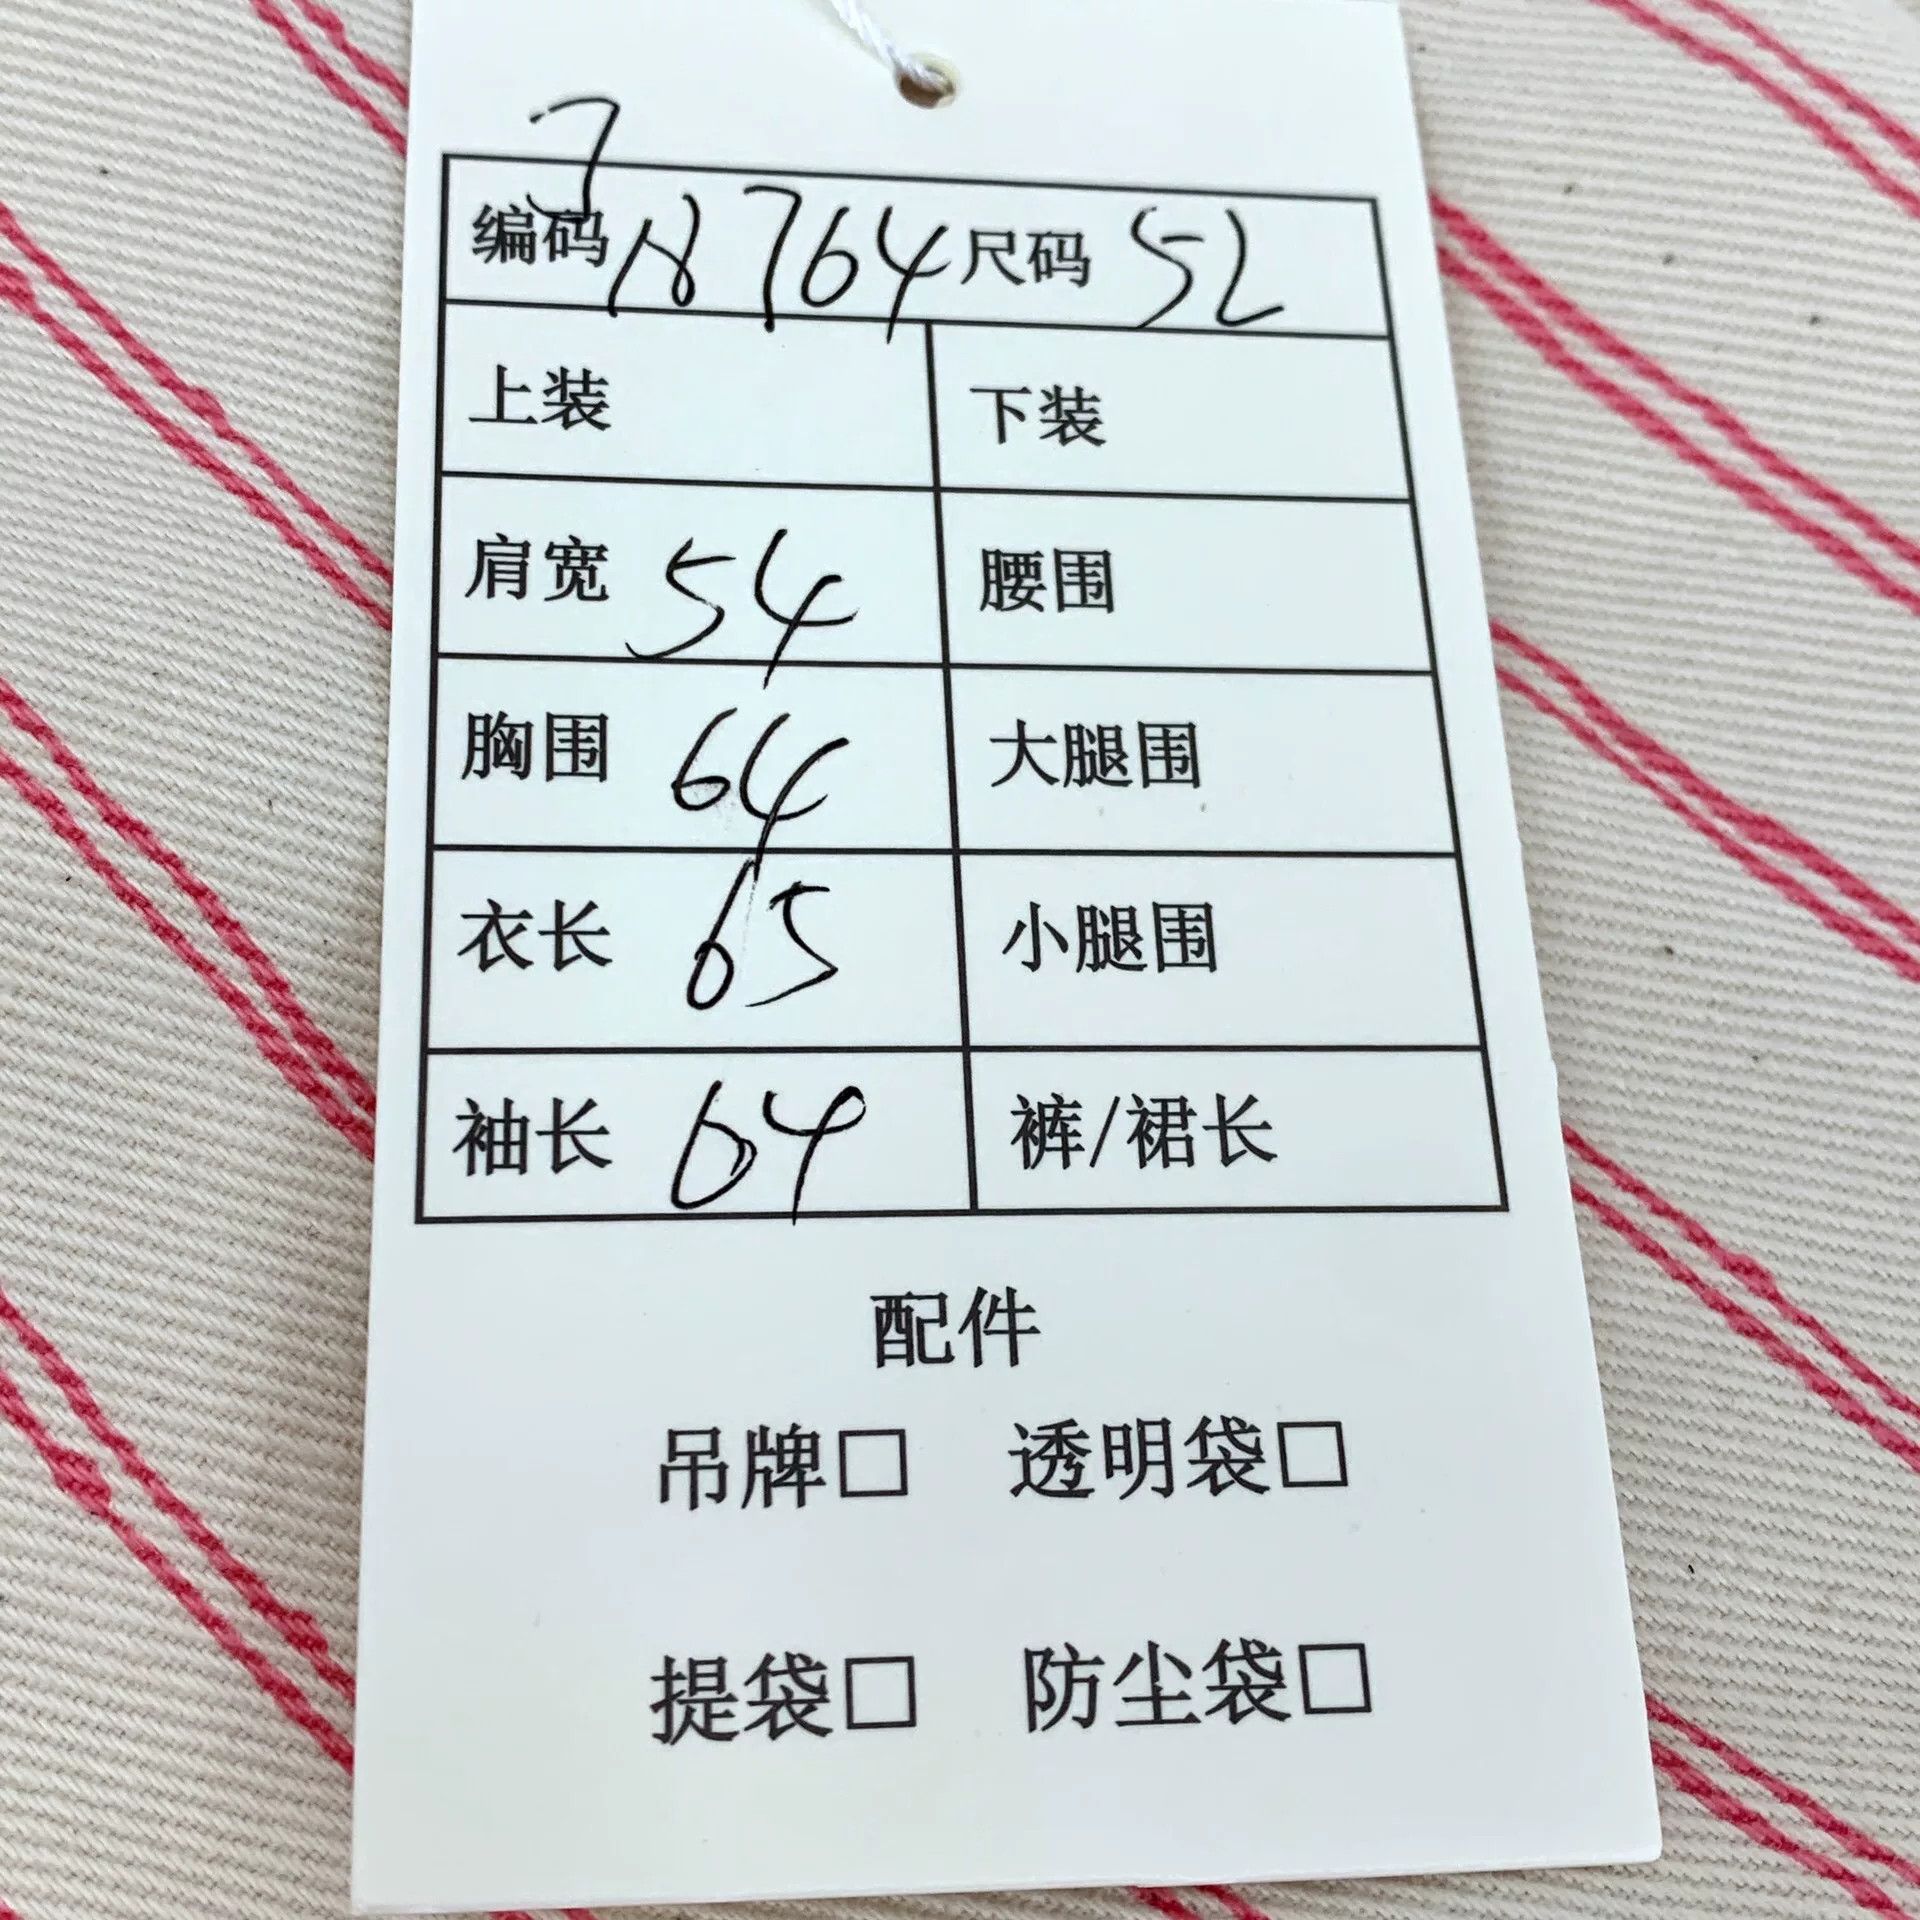 J
编码 18764 尺码 52
上装 下装
肩宽 54 腰围
胸围 64 大腿围
衣长 65 小腿围
袖长 64 裤/裙长
配件
吊牌□ 透明袋□
提袋□ 防尘袋□